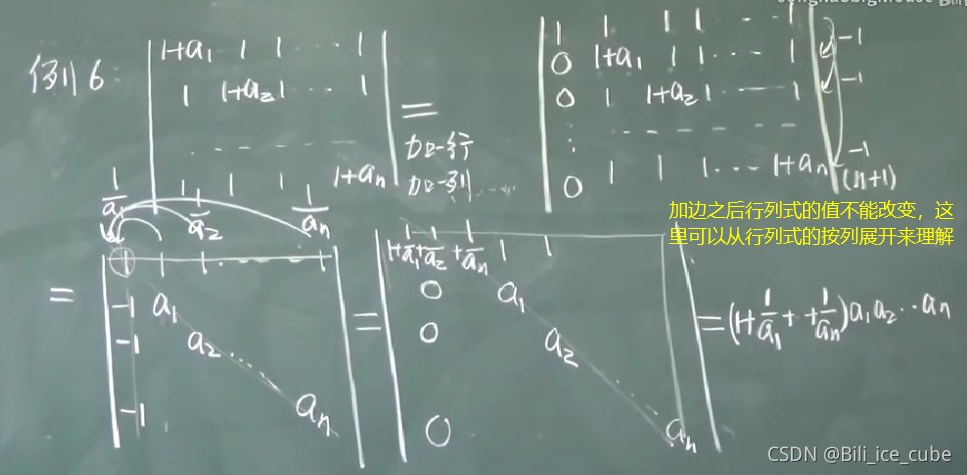 例6:
1+a₁ 1 1 ··· 1
1 1+a₂ 1 ··· 1
··· ··· ···
1 1 1 1+aₙ
=
加一行
加一列
1 1 1 1 ··· 1
0 1+a₁ 1 1 ··· 1 -1
0 1 1+a₂ 1 ··· 1 -1
⋮ ··· ··· ···
0 1 1 1 ··· 1+aₙ -1
(n+1)
加边之后行列式的值不能改变，这
里可以从行列式的按列展开来理解
1/a₁ 1/a₂ 1/aₙ
= 1 1 1 ··· 1
-1 a₁
-1 a₂ ···
-1 aₙ
= 1+1/a₁+1/a₂ +1/aₙ 1 1
0 a₁
0 a₂
0 aₙ
=(1+1/a₁+ +1/aₙ)a₁a₂··aₙ
CSDN @Bili_ice_cube